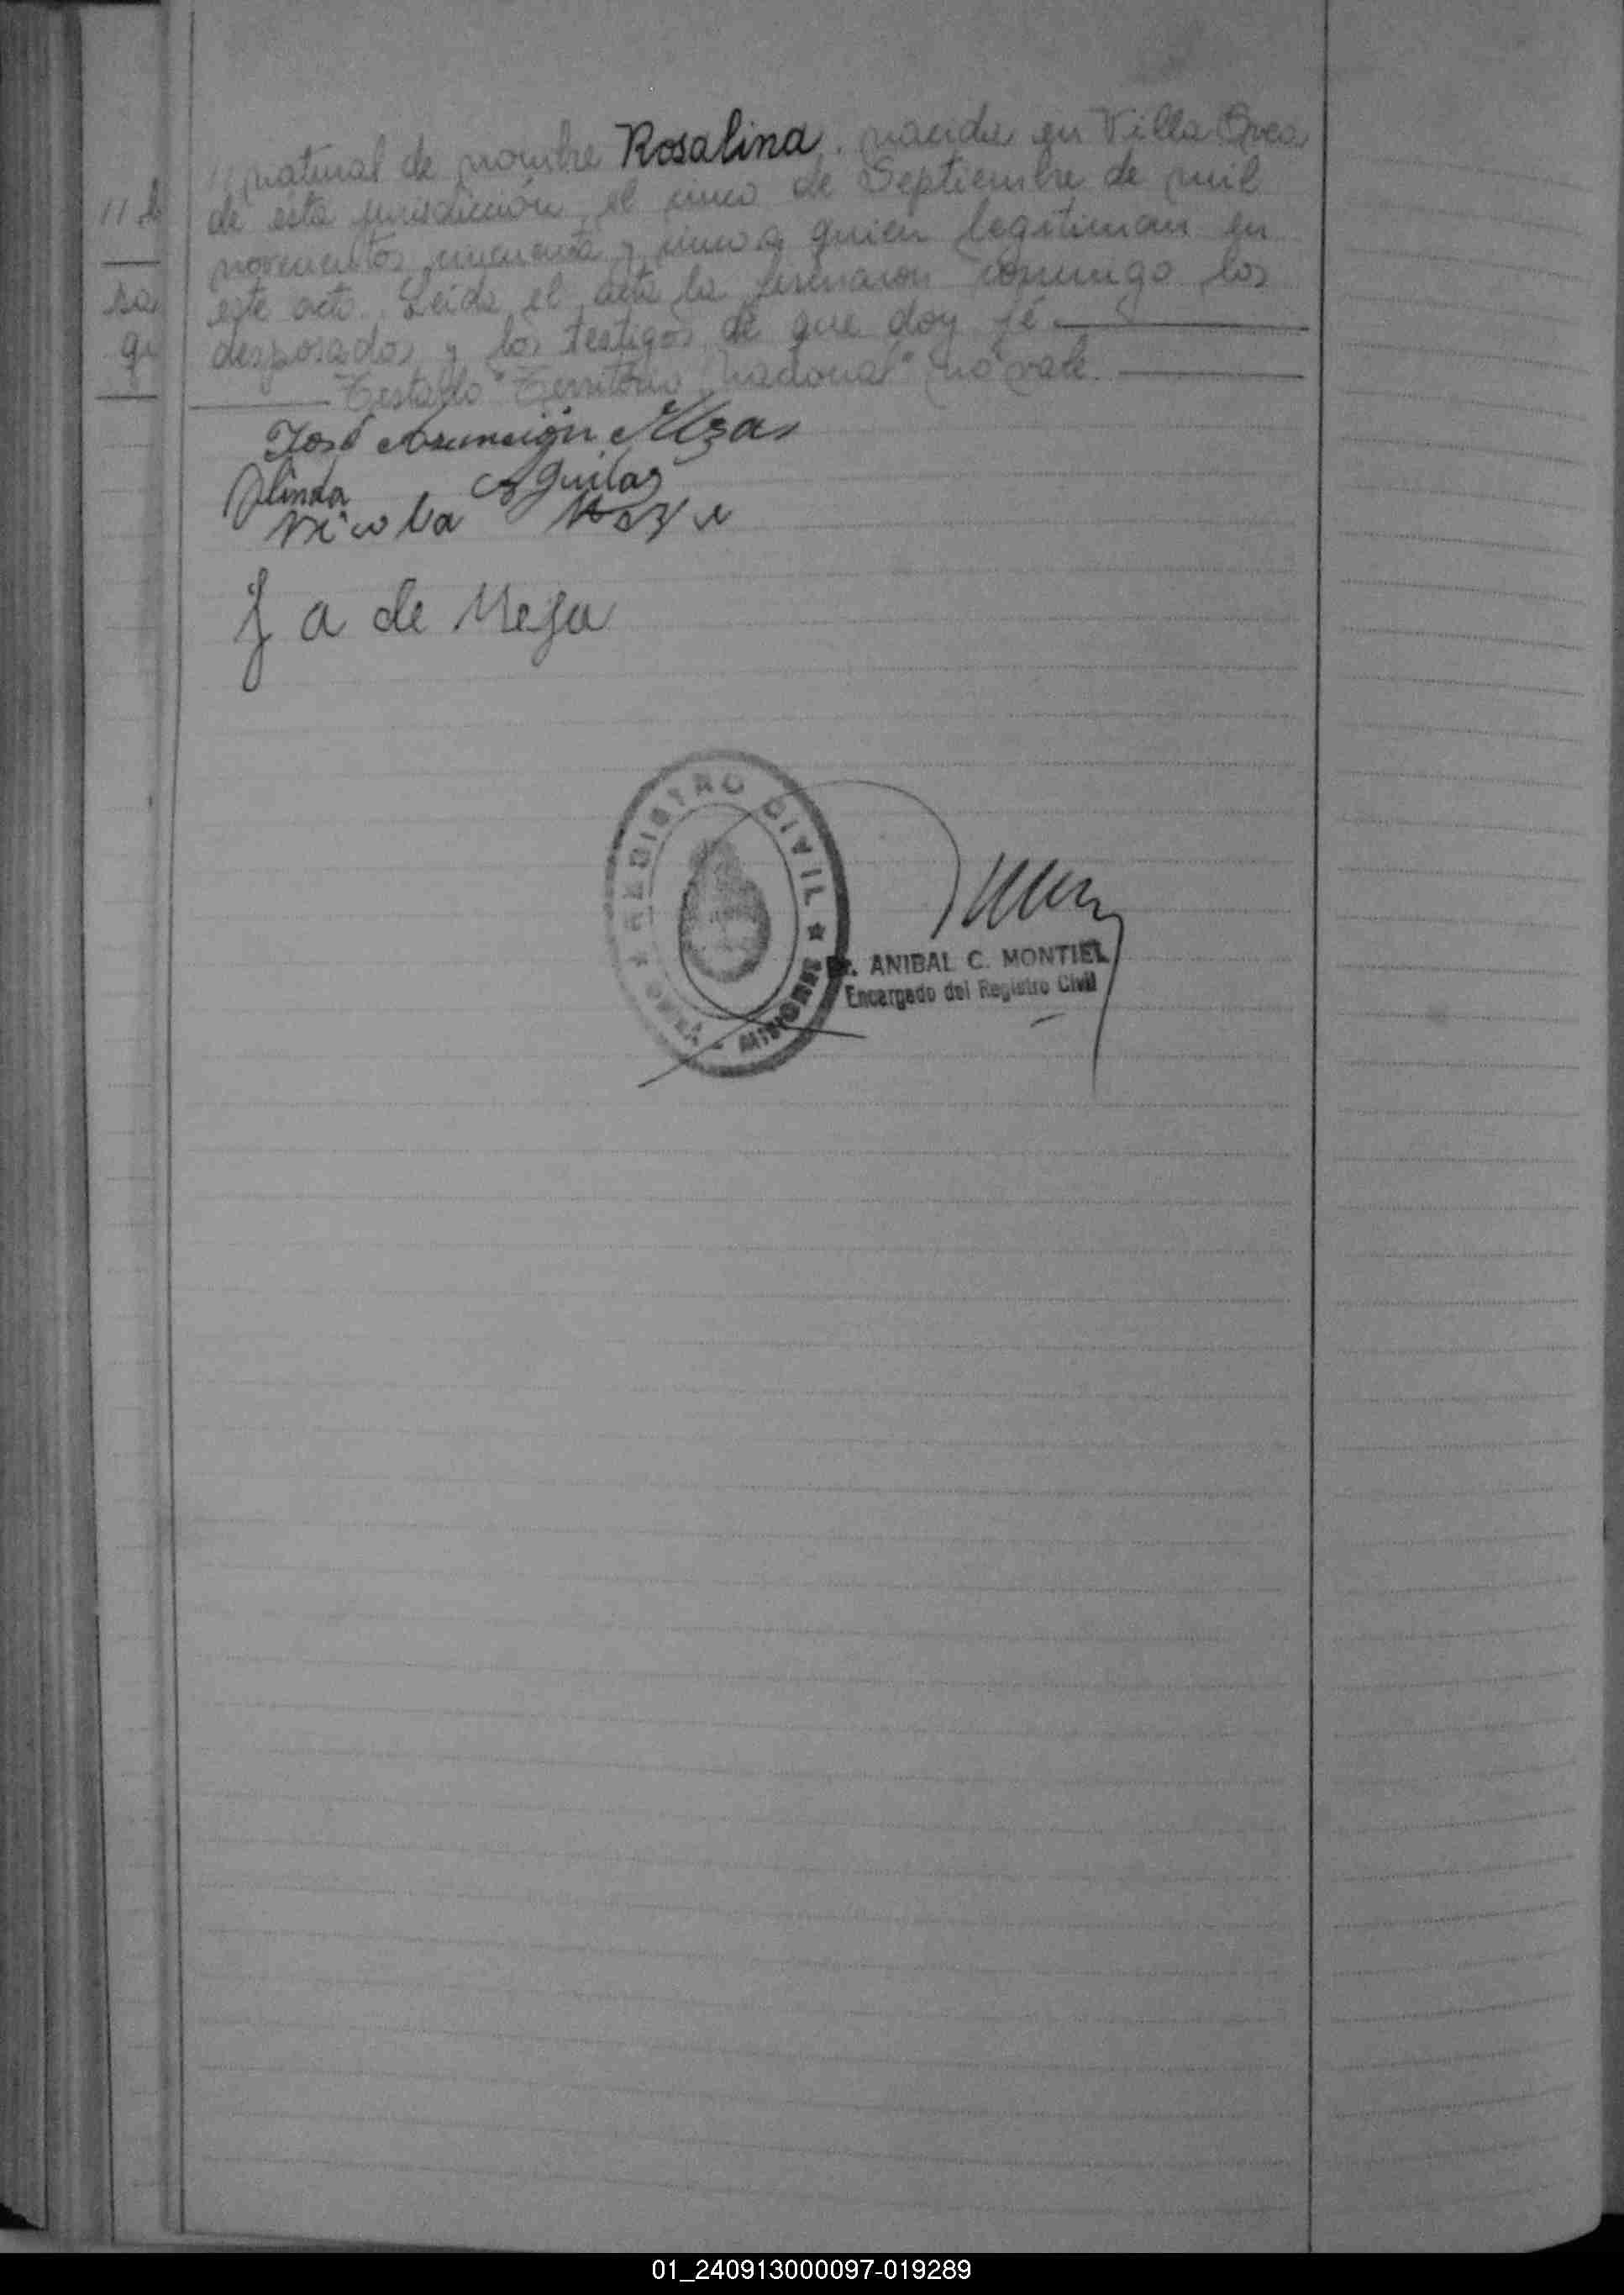 natural de nombre Rosalina. nacida en Villa Brea
de esta jurisdicción, el cinco de Septiembre de mil
novecientos cincuenta y cinco a quien legitiman en
este acto. Leida el acta la firmaron conmigo los
desposados y los testigos de que doy fé
Testado "Territorio Nacional" no vale.
11 d
sa
qu
José Asunción Meza
Olinda Aguilar
Nicola
J a de Meza
REGISTRO CIVIL ★ MISIONES
Dr. ANIBAL C. MONTIEL
Encargado del Registro Civil
01_240913000097-019289